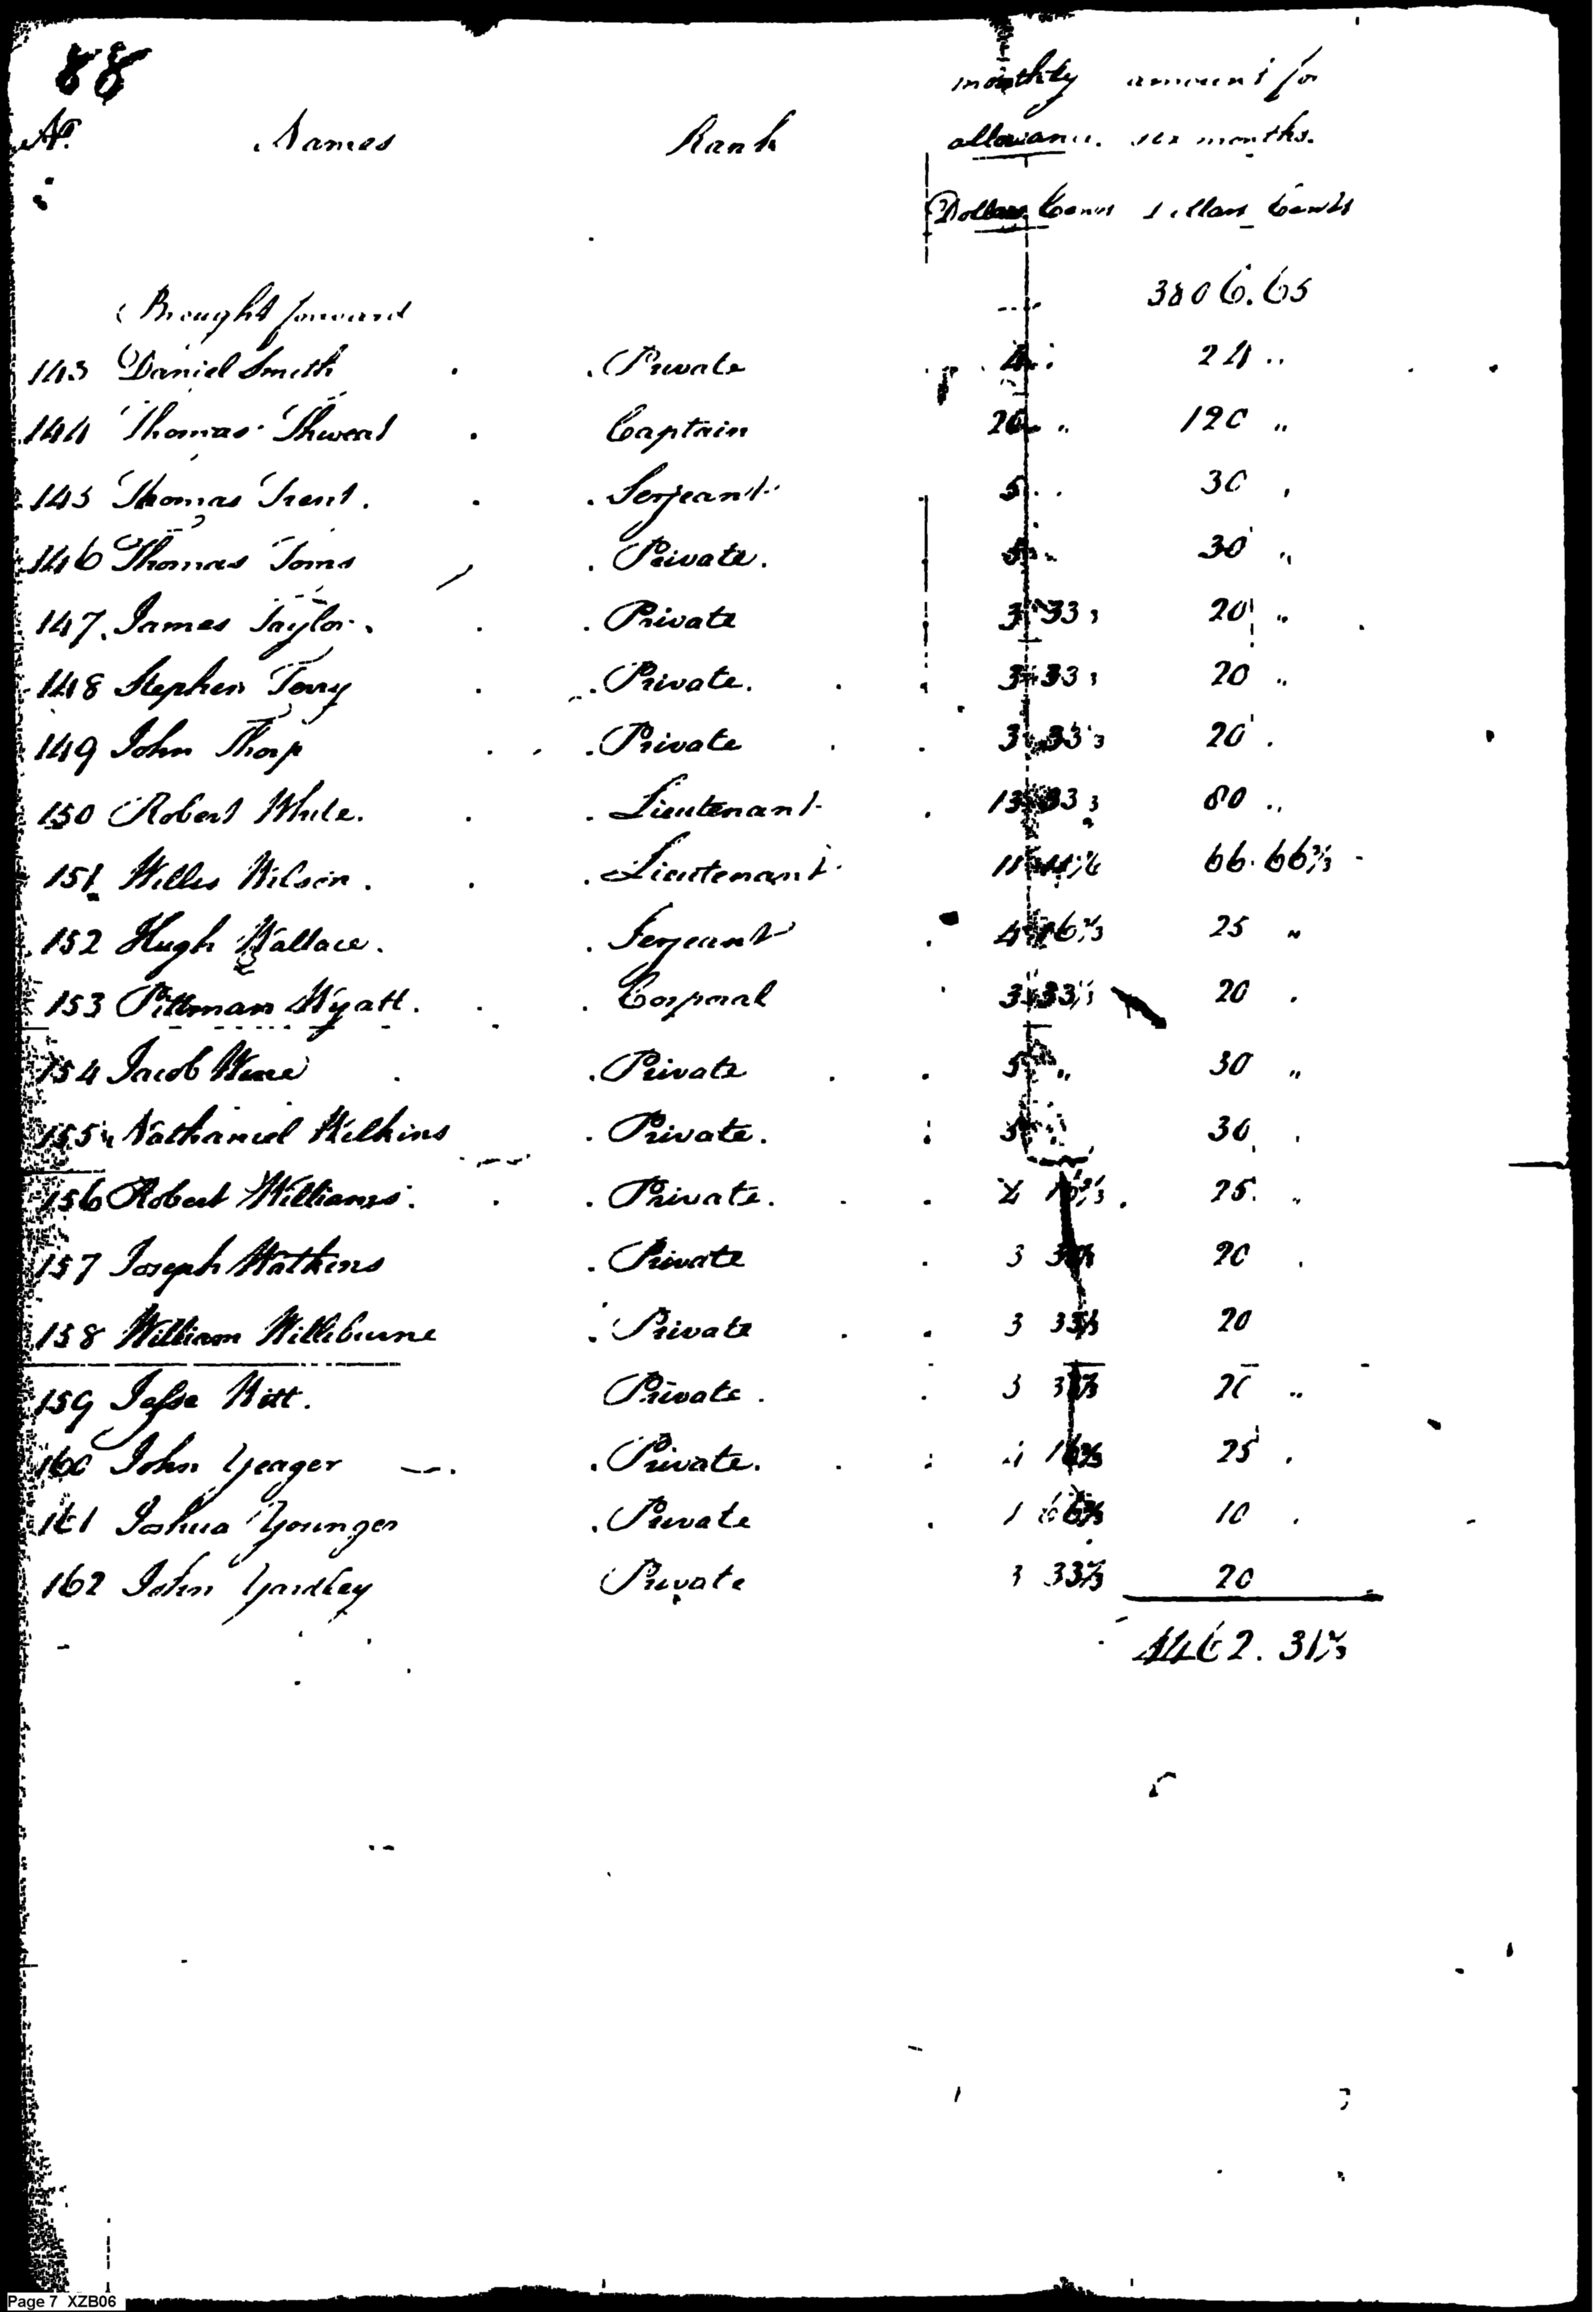 88
monthly amount for
No. Names Rank allowance. six months.
Dollars Cents Dollars Cents
Brought forward 3806.65
143 Daniel Smith Private 4 24 ..
144 Thomas Thweat Captain 20 „ 120 „
145 Thomas Trent. Serjeant 5 .. 30
146 Thomas Toms Private. 5 .. 30 „
147. James Taylor. Private 3 33 20 „
148 Stephen Terry Private. 3 33 20 „
149 John Thorp Private 3 33 20 .
150 Robert White. Lieutenant 13 33 80 ..
151 Willis Wilson. Lieutenant 11 66.66⅔
152 Hugh Wallace. Serjeant 4 16⅔ 25 „
153 Pittman Wyatt. Corporal 3 33⅓ 20 .
154 Jacob Private 5 „ 30 „
155 Nathaniel Wilkins Private. 5 30
156 Robert Williams. Private. 4 16⅔ 25. „
157 Joseph Watkins Private 3 33⅓ 20 .
158 William Williburne Private 3 33⅓ 20
159 Jesse Witt. Private. 3 33⅓ 20 „
160 John Yeager Private. 4 16⅔ 25 .
161 Joshua Younger Private 1 66⅔ 10 .
162 John Yardley Private 3 33⅓ 20
4462.31⅔
Page 7 XZB06